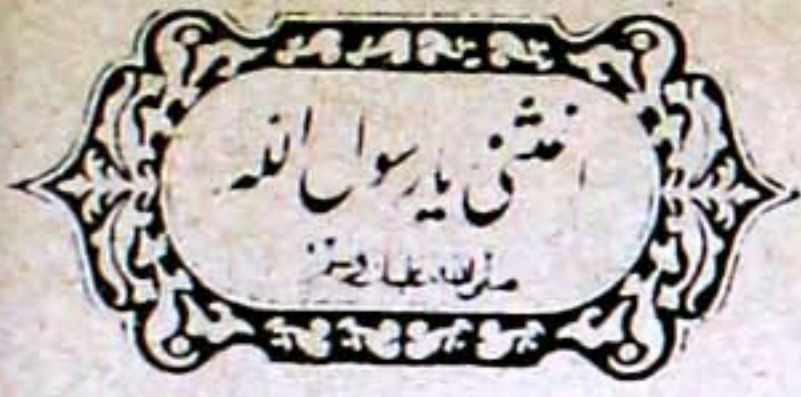 اغثنی یا رسول اللہ
صلی اللہ علیہ وسلم